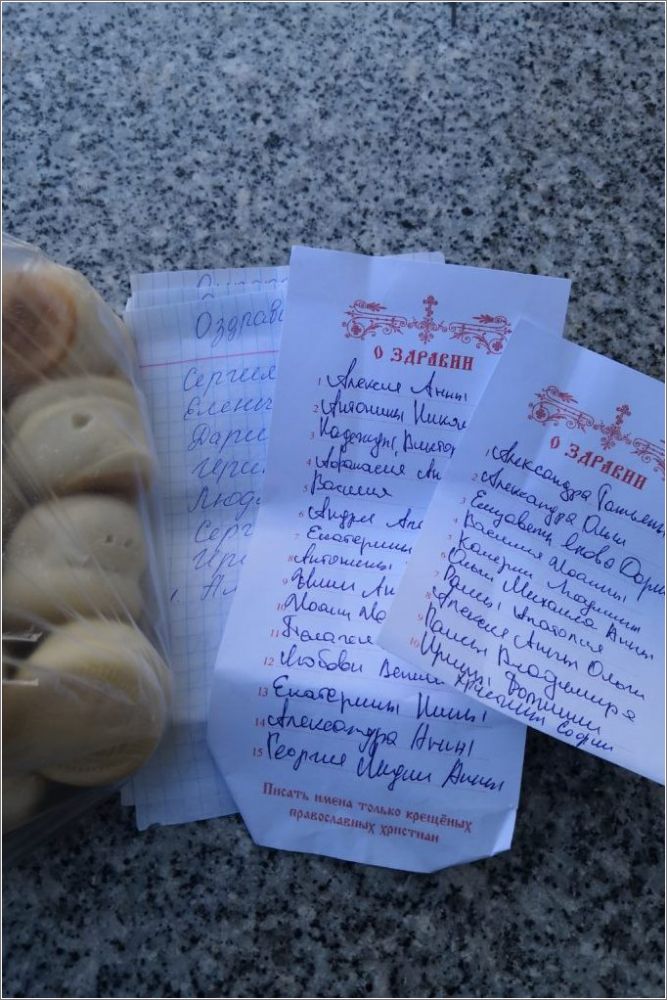 Оздрав
Сергия
Елены
Дарь
Людм
Серг
О ЗДРАВИИ
1 Алексия Анны
2 Антонины Никол
3 Надежды, Виктор
4 Афанасия Ан
5 Василия
6 Андрея Але
7 Екатерины
8 Антонины
9 Нины Ан
10 Иоанн
11 Пелагея
12 Любови
13 Екатерины Нины
14 Александра Анны
15 Георгия Лидии Анны
Писать имена только крещёных
православных христиан
О ЗДРАВИИ
1 Александра Татьяны
2 Александра Ольги
3 Елизаветы Иакова Дарии
4 Василия Иоанны
5 Валерии Людмилы
6 Ольги Михаила Анны
7 Раисы Анатолия
8 Алексия Анны Ольги
9 Раисы Владимира
10 Ирины Фотинии
Христины Софии